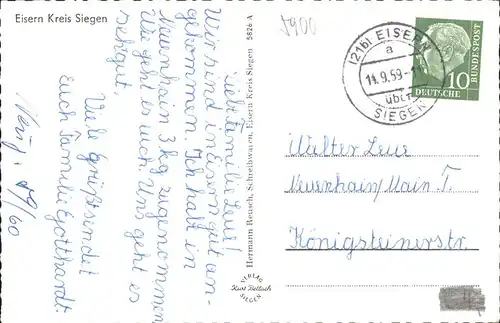 Eisern Kreis Siegen
5826 A
5900
(21b) EISERN
a
14.9.59
über
SIEGEN
10
DEUTSCHE
BUNDESPOST
Liebe Familie Leue!
Wir sind in Eisern gut an-
gekommen. Ich habt in
Neuenhain 3 kg zugenommen.
Wie geht es euch. Uns geht es
sehr gut.
Viele Grüße sendet
Euch Familie Gotthardt
Herrmann Reusch, Schreibwaren, Eisern Kreis Siegen
VERLAG
Kurt Bellach
SIEGEN
Walter Leue
Neuenhain/Main T.
Königsteinerstr.